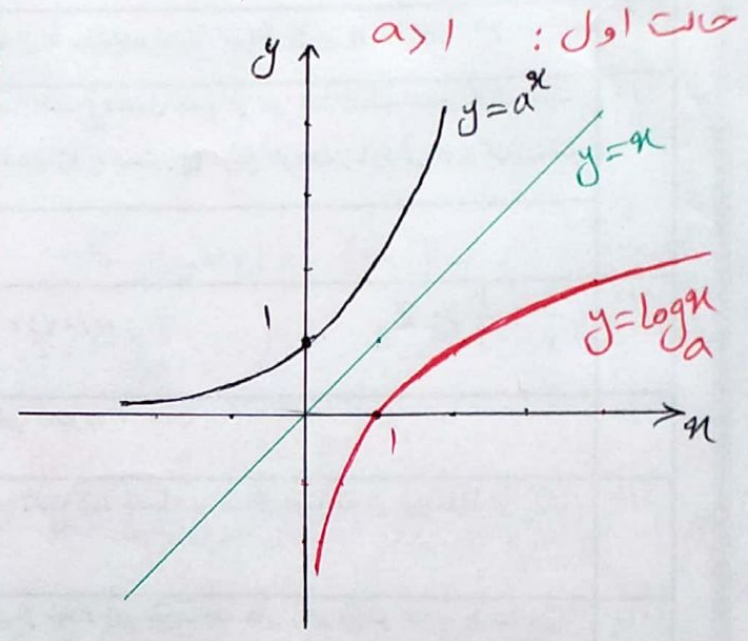 حالت اول : a>1
y
y=a^x
y=x
1
y=log_a^x
1
x